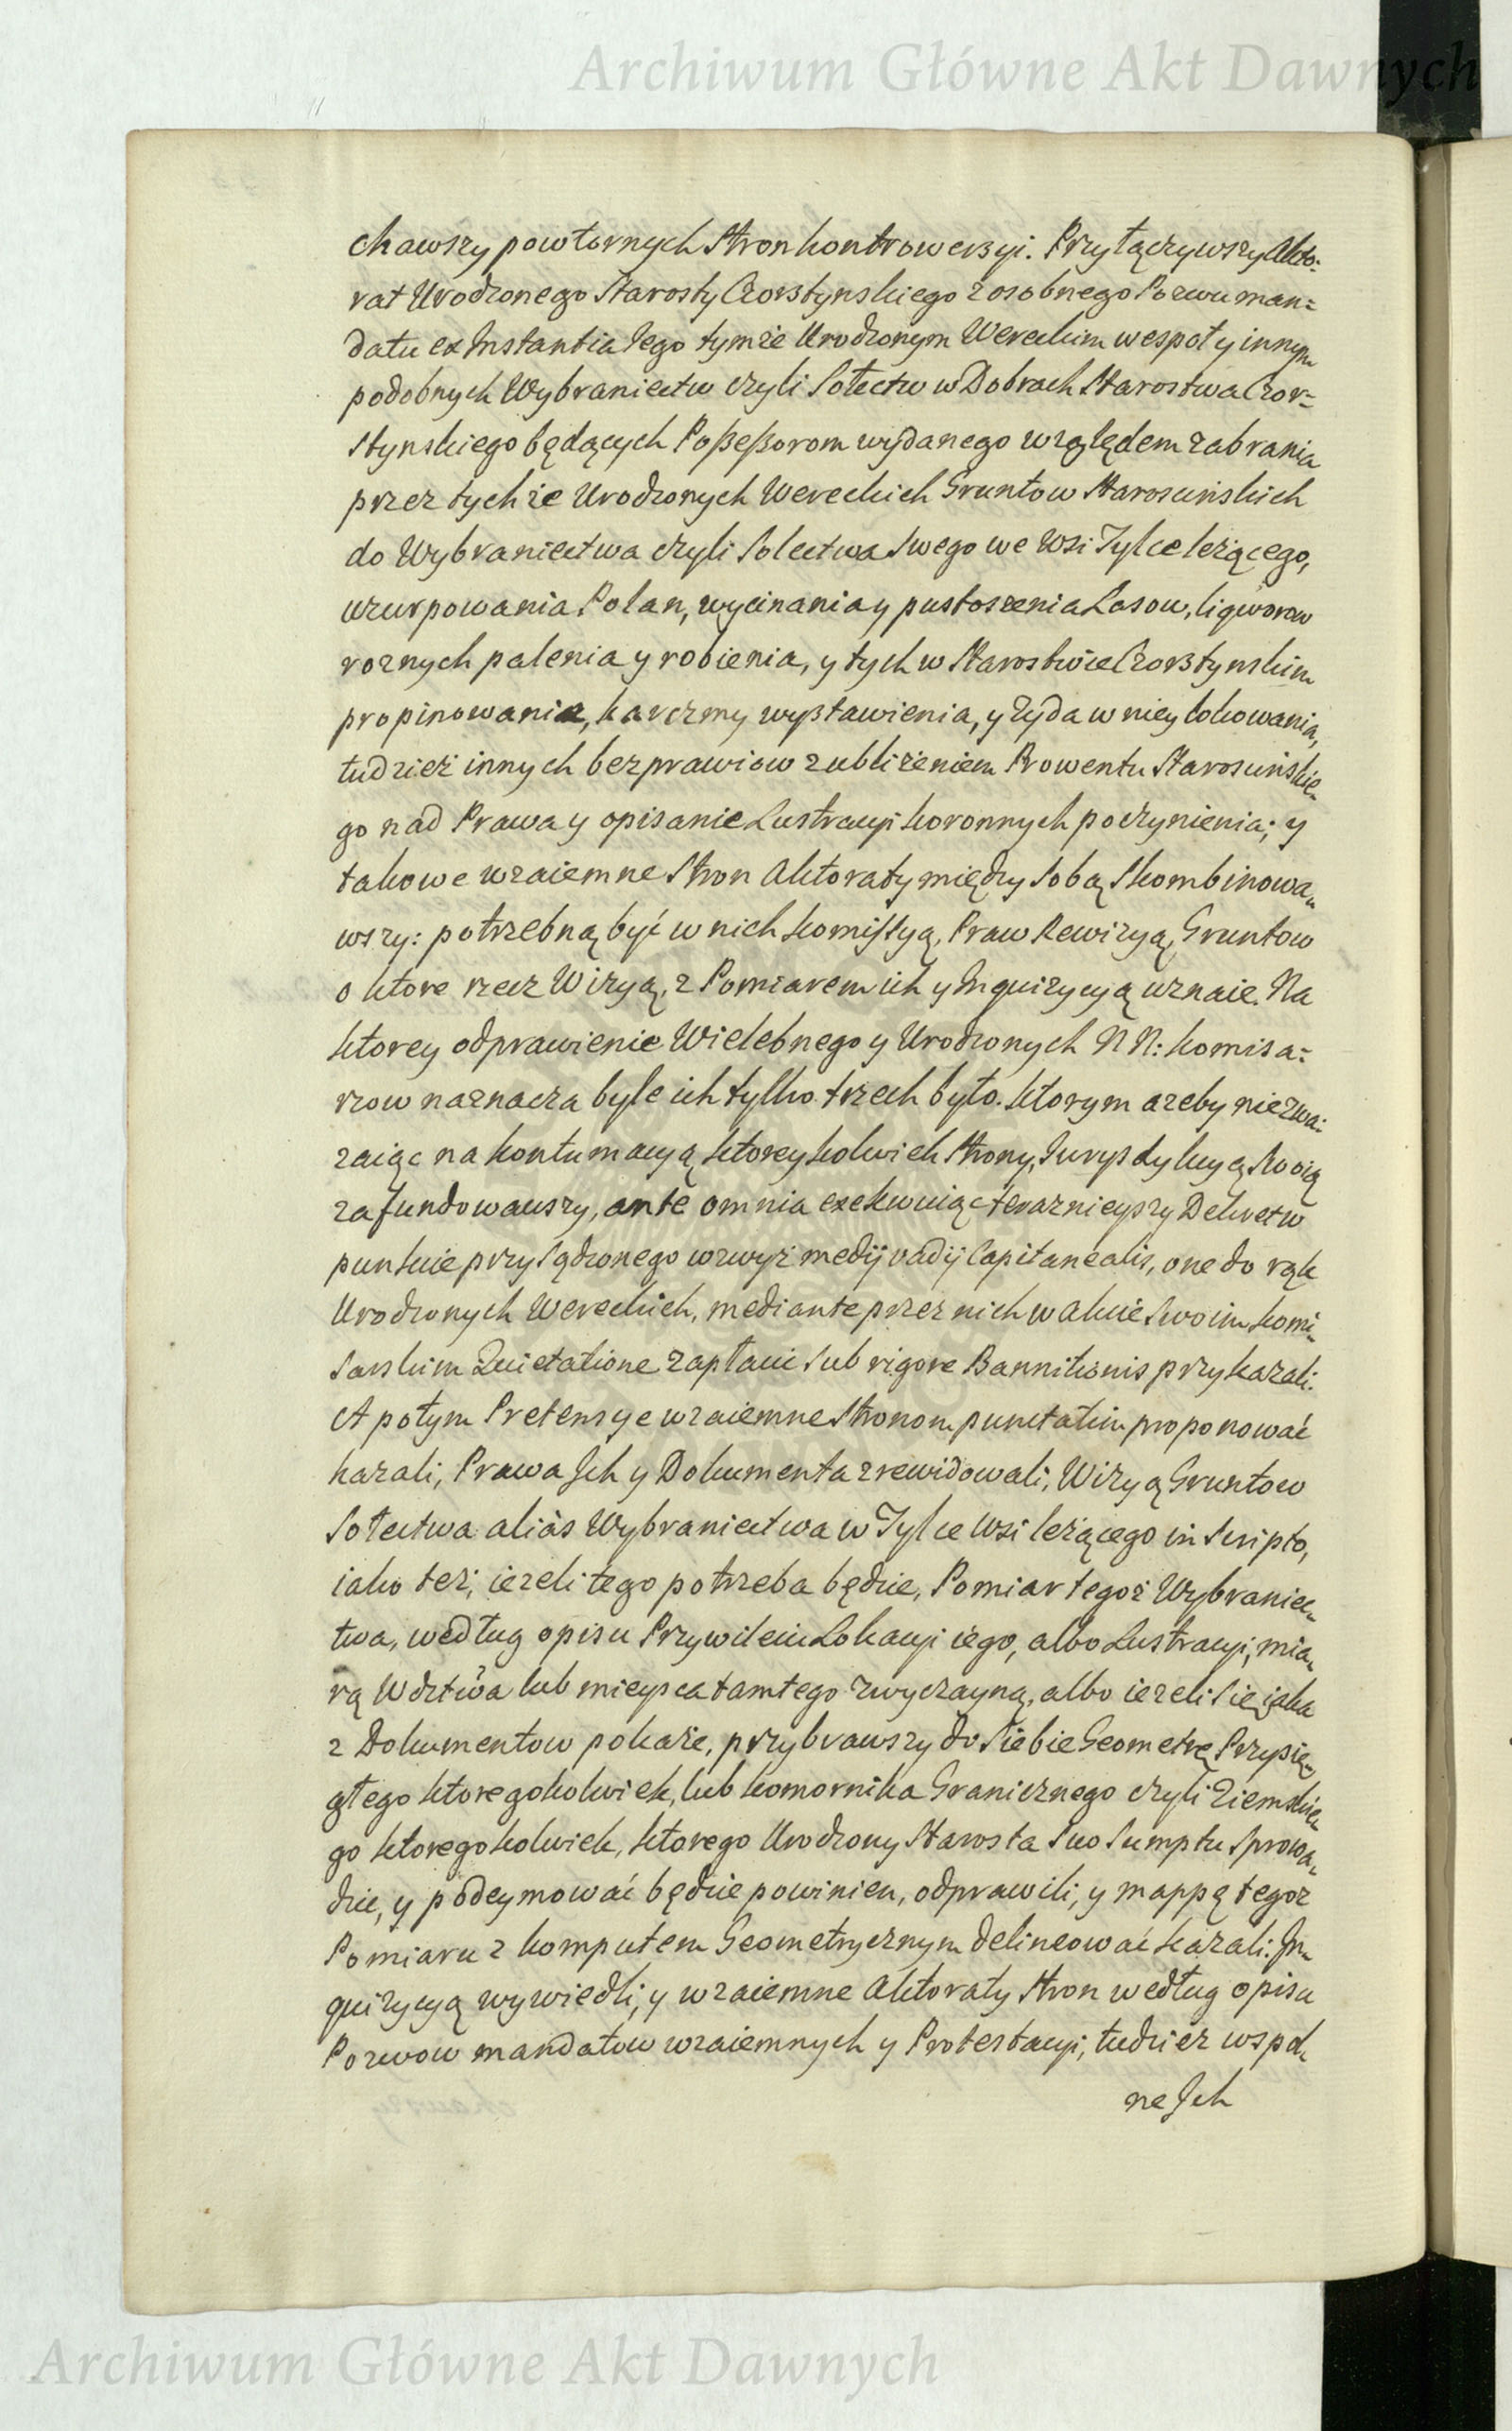 Archiwum Główne Akt Dawnych
chawszy powtornych Stron kontrowersyi. Przyłączywszy Akto=
rat Urodzonego Starosty Czorsztynskiego z osobnego Pozwu man=
datu ex Instantia Jego tymże Urodzonym Wereckim wespoł y innym
podobnych Wybraniectw czyli Sołectw w Dobrach Starostwa Czor=
sztynskiego będących Possessorom wydanego względem zabrania
przez tychże Urodzonych Wereckich Gruntow Starościńskich
do Wybraniectwa czyli Solectwa Swego we Wsi Tylce leżącego,
uzurpowania Polan, wycinania y pustoszenia Lasow, liqworow
roznych palenia y robienia, y tych w Starostwie Czorsztynskim
propinowania, karczmy wystawienia, y Zyda w niey lokowania,
tudzież innych bezprawiow z ubliżeniem Prowentu Starościńskie-
go nad Prawa y opisanie Lustracyi koronnych poczynienia; y
takowe wzaiemne Stron Aktoraty między Sobą Skombinowa-
wszy: potrzebną być w nich komissyą, Praw Rewizyą, Gruntow
o ktore rzecz Wizyą, z Pomiarem ich y Inquizycyą uznaie. Na
ktorey odprawienie Wielebnego y Urodzonych NN: komisa=
rzow naznacza byle ich tylko trzech było. ktorym azeby nie zwa=
zaiąc na kontumacyą ktoreykolwiek Strony, Jurysdykcyą Swoią
zafundowawszy, ante omnia exekwuiąc teraznieyszy Dekret w
punkcie przysądzonego wzwyż medij vadij Capitanealis, one do rąk
Urodzonych Wereckich, mediante przez nich w Akcie Swoim komi-
sarskim Quietatione zapłacić Sub rigore Bannitionis przykazali.
A potym Pretensye wzaiemne Stronom punctatim proponować
kazali, Prawa Ich y Dokumenta zrewidowali, Wizyą Gruntow
Sołectwa aliàs Wybraniectwa w Tylce Wsi leżącego in Scripto,
iako też, ieżeli tego potrzeba będzie, Pomiar tegoż Wybraniec-
twa, według opisu Przywileiu Lokacyi iego, albo Lustracyi, mia-
rą Wdztwa lub mieysca tamtego zwyczayną, albo ieżeli się iaka
z Dokumentow pokaże, przybrawszy do Siebie Geometrę Przysię-
głego ktoregokolwiek, lub komornika Granicznego czyli Ziemskie-
go ktoregokolwiek, ktorego Urodzony Starosta Suo Sumptu Sprowa-
dzić, y podeymować będzie powinien, odprawili, y mappę tegoz
Pomiaru z komputem Geometrycznym delineować kazali. In-
quizycyą wywiedli, y wzaiemne Aktoraty Stron według opisu
Pozwow mandatow wzaiemnych y Protestacyi, tudzież wspol-
ne Ich
Archiwum Główne Akt Dawnych